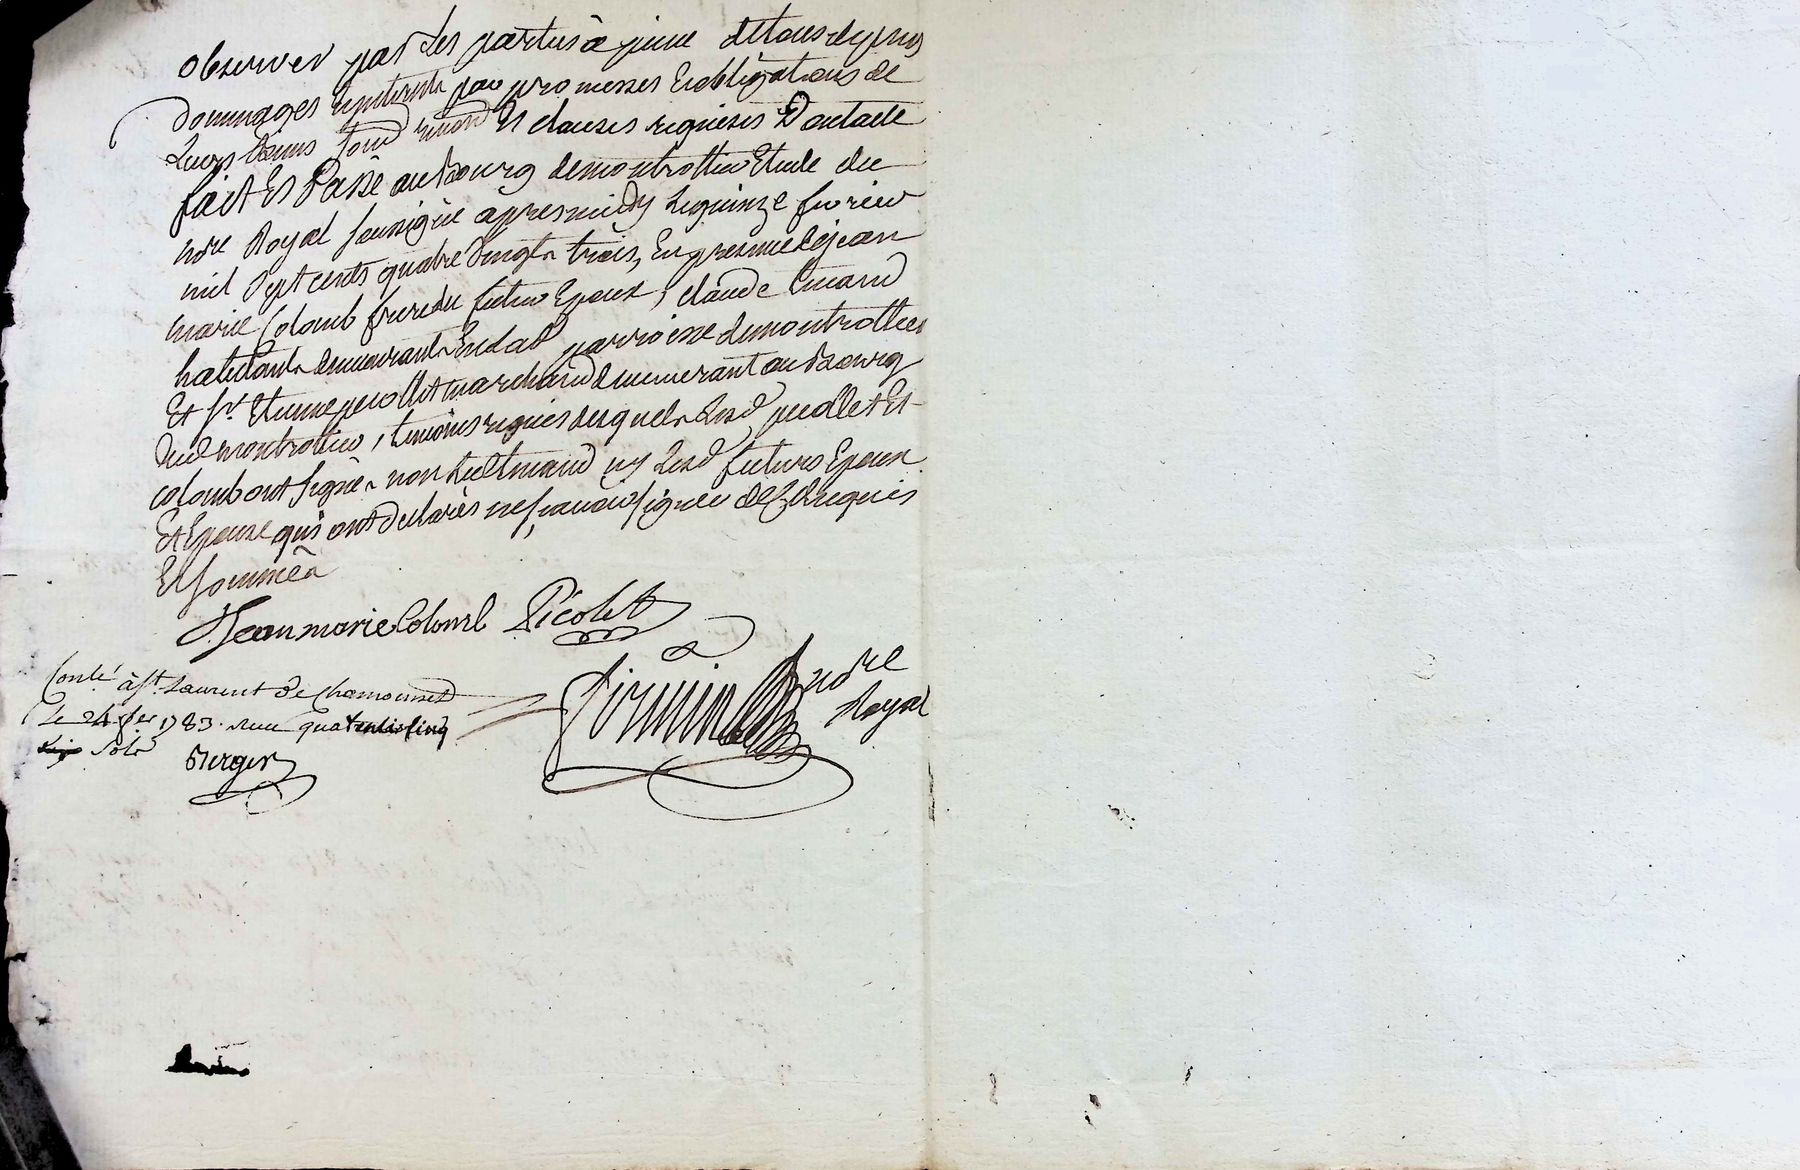 observer par les parties à peine de tous depens
dommages Interests par promesses Et obligations de
Leurs biens soumd renond Et clauses requises Dont acte
fait Et Passé au Bourg de montrottier Etude du
nore Royal soussigné apres midy Le quinze fevrier
mil sept cents quatre vingts trois, En presence de jean
marie Colomb frere du futur Epoux, claude
habitant demeurant En lad parroisse de montrottier
Et sr Etienne pecollet marchand demeurant au Bourg
dud montrottier, temoins requis desquels Lesd pecollet Et
colomb ont signé non led ny Lesd futurs Epoux
Et Epouse qui ont declarés ne sçavoir signer de ce Enquis
Et sommés
Jean marie Colomb Pécolet
Conlé à st Laurent de Chamousset
Le 24 fer 1783. Reçu quatre cinq
sols
Berger
Firmin nore
Royal